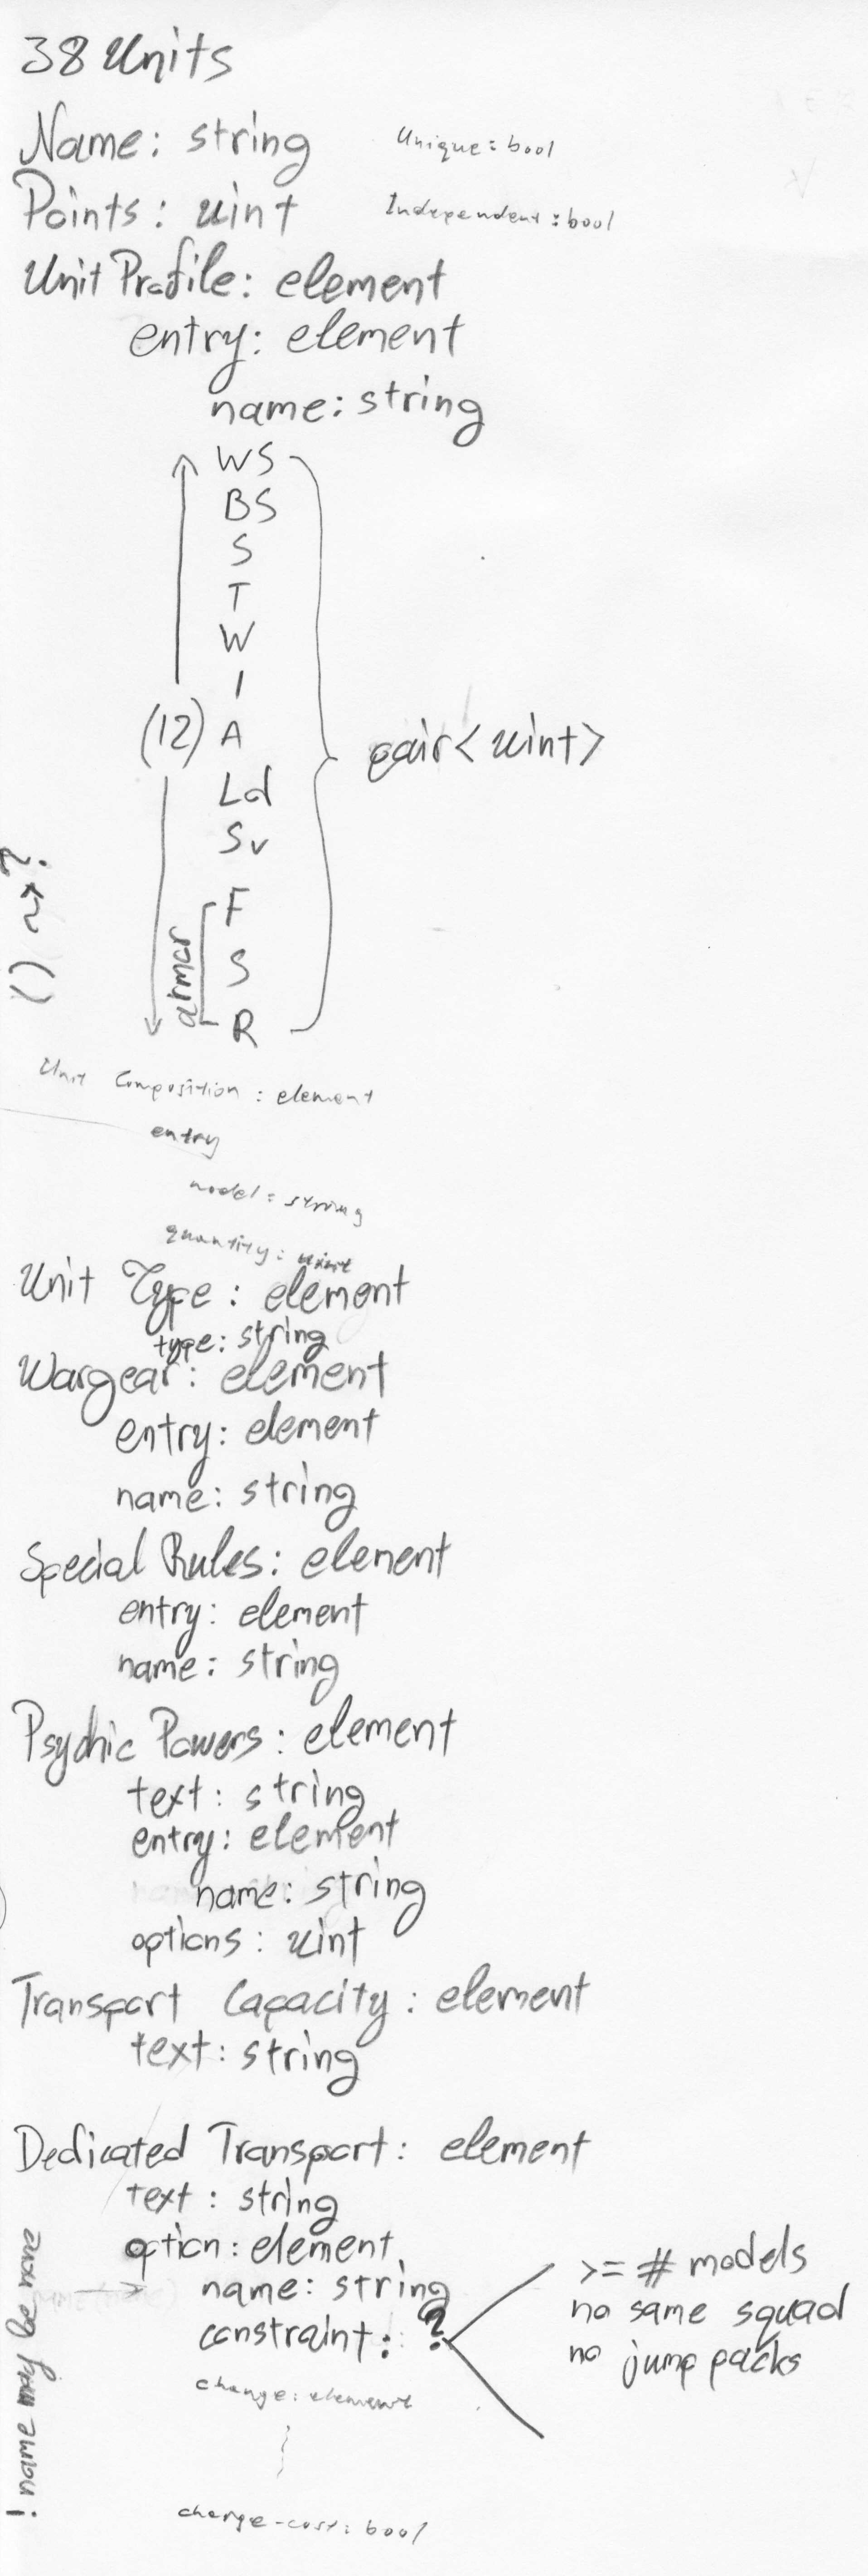 38 Units
Name: string
Unique: bool
Points: uint
Independent: bool
Unit Profile: element
entry: element
name: string
WS
BS
S
T
W
I
(12) A
pair<uint>
Ld
Sv
() ~>?
armor
F
S
R
Unit Composition: element
entry
model: string
quantity: uint
Unit Type: element
type: string
Wargear: element
entry: element
name: string
Special Rules: element
entry: element
name: string
Psychic Powers: element
text: string
entry: element
name: string
options: uint
Transport Capacity: element
text: string
Dedicated Transport: element
text: string
option: element
name: string
constraint: ?
>= # models
no same squad
no jump packs
! name may be none
change: element
change-cost: bool